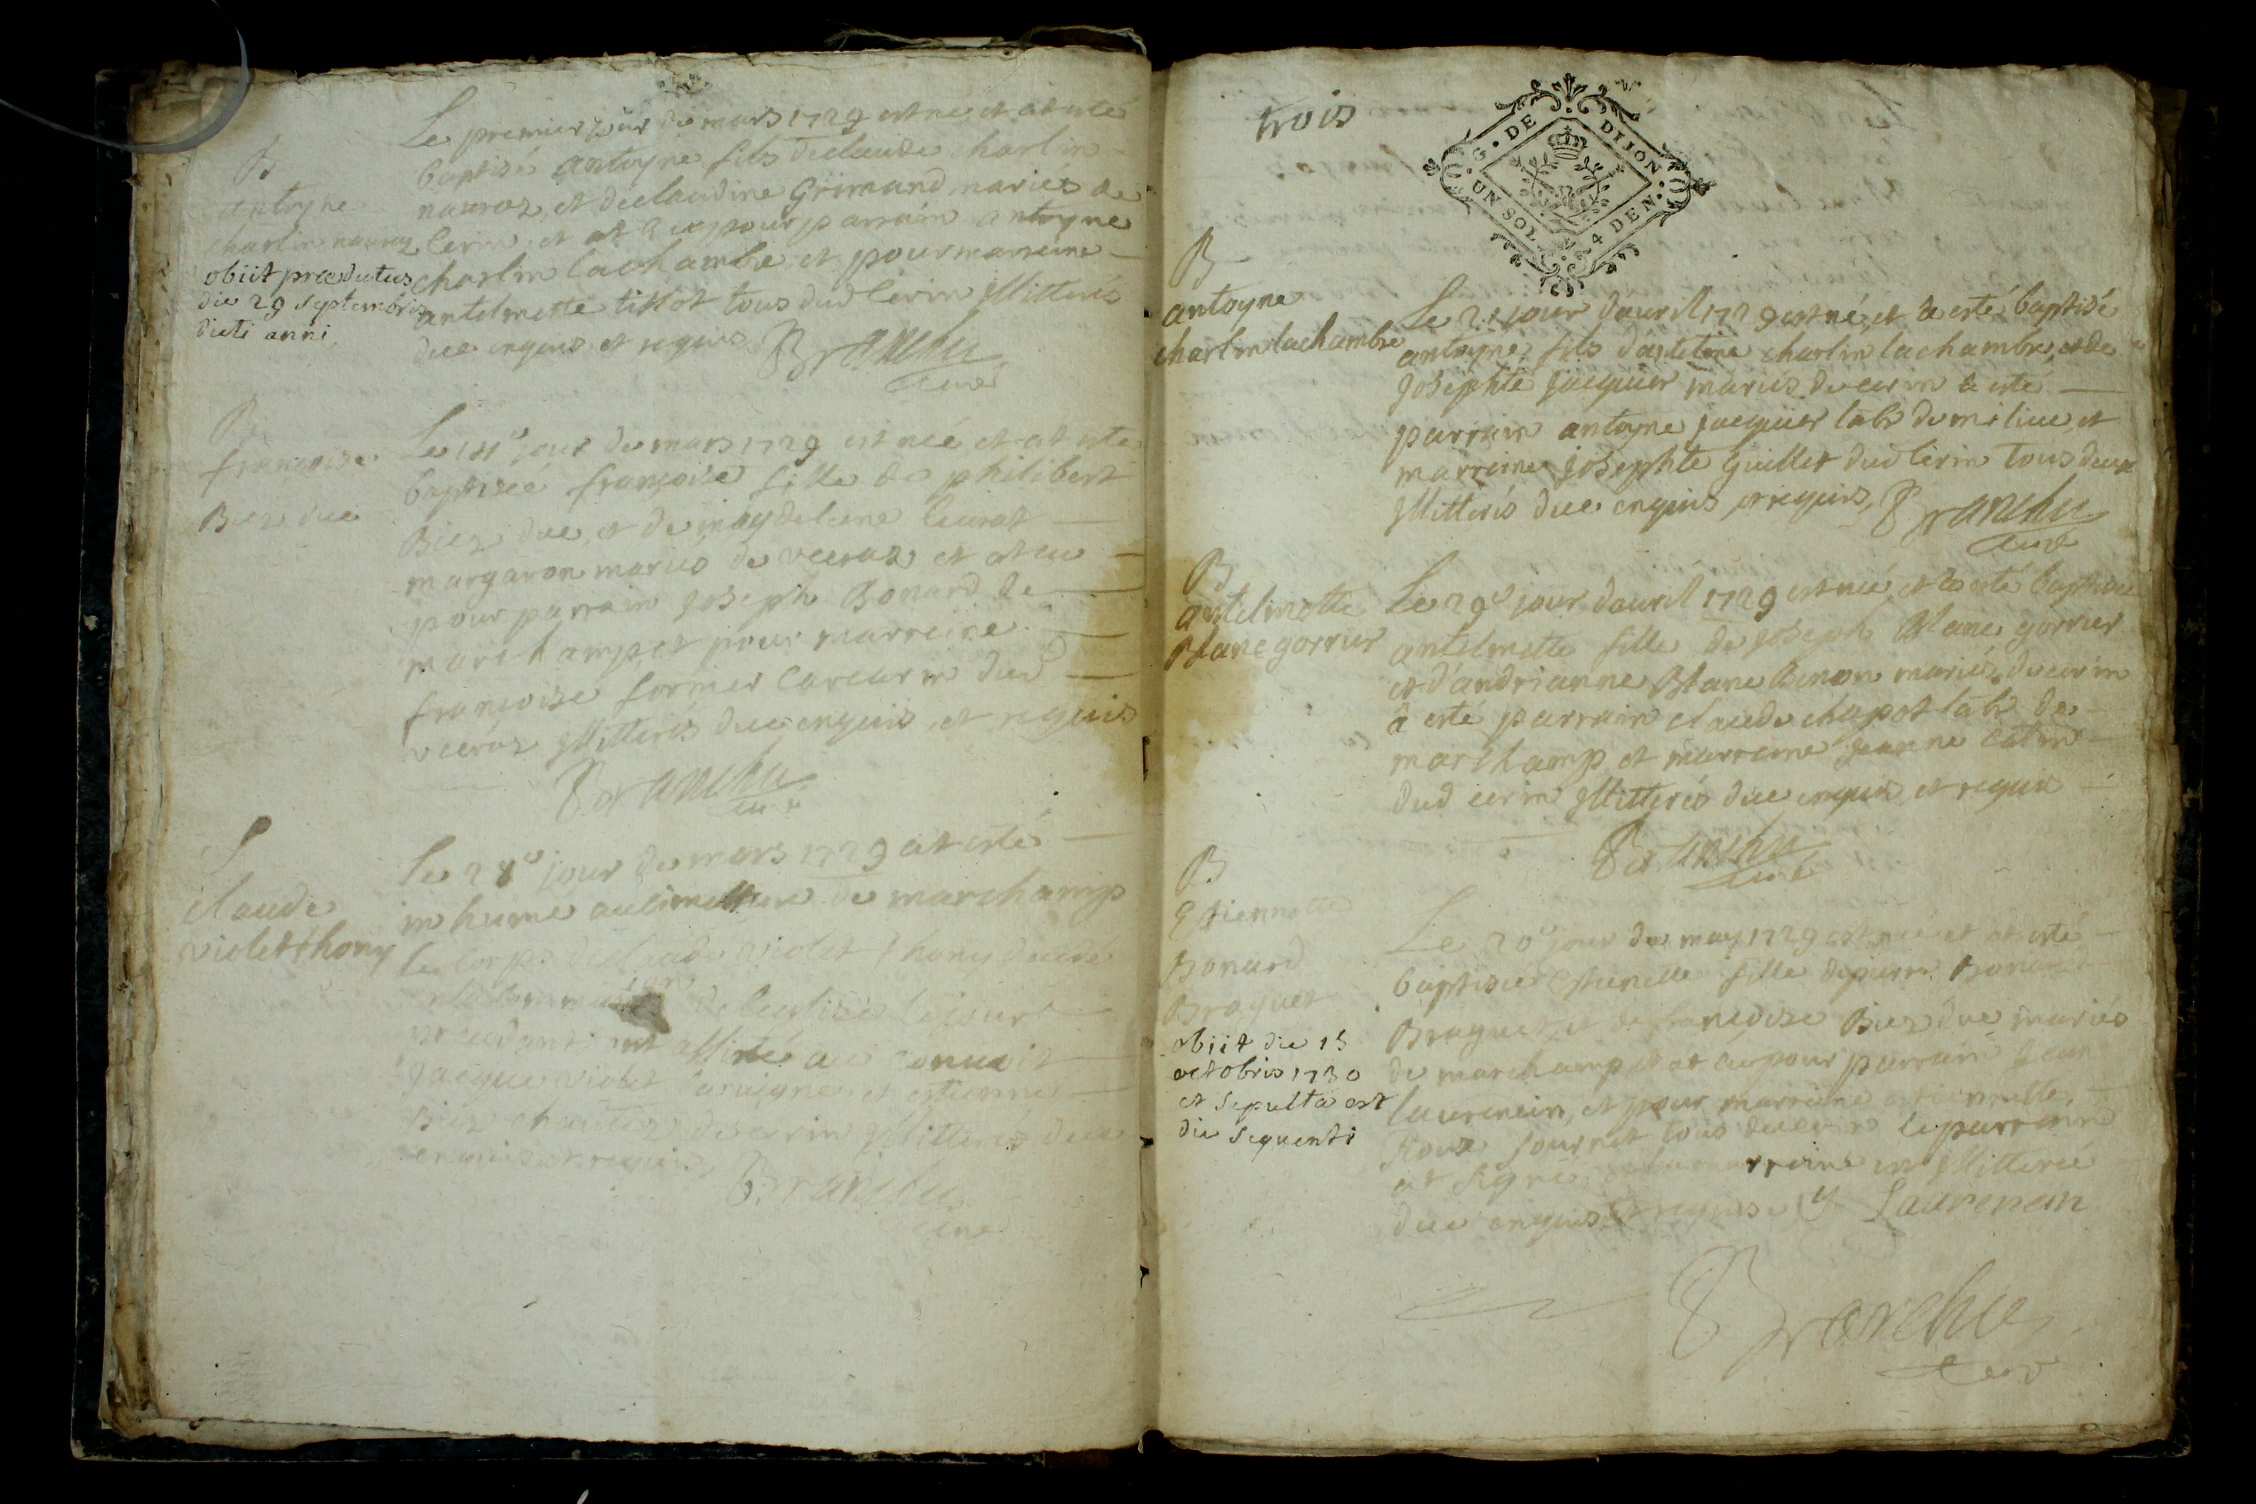 B
antoyne
charlin nauroz
obiit praedictus
die 29 septembris
dicti anni
Le premier jour de mars 1729 est né et at esté
baptisé antoyne fils de claude charlin
nauroz, et de claudine Grimand mariés de
cerin et at eu pour parrain antoyne
charlin lachambre et pour marreine
antelmette tissot tous dud cerin Illitterés
due enquis et requis Branchu
curé
B
francoise
Biez due
Le jour de mars 1729 est née et at esté
baptisée françoise fille de philibert
Biez due, et de magdeleine
margaron mariés de veeraz et at eu
pour parrain Joseph Bonard de
marchamp et pour marreine
françoise fornier dud
veeraz Illitterés due enquis et requis
Branchu
curé
S
claude
violet thony
Le 28e jour de mars 1729 at esté
inhumé au cimettiere de marchamp
le corps de claude violet thony decedé
de l'eglise le jour
precedant ont assisté au convoit
Jacque violet et estienne
Biez de cerin Illitterés due
enquis et requis
Branchu
curé
trois
G. DE DIJON.
UN SOL 4 DEN.
B
antoyne
charlin lachambre
Le 21 jour d'auril 1729 est né, et a esté baptisé
antoyne fils d'antelme charlin lachambre, et de
Josephte jacquier mariés de cerin a esté
parrain antoyne jacquier lab de et
marreine Josephte Guillet dud cerin tous deux
Illitterés due enquis et requis, Branchu
curé
B
antelmette
Blanc gorrier
Le 29e jour d'auril 1729 est née, et a esté baptisée
antelmette fille de Joseph Blanc gorrier
et d'andrianne Blanc Benon mariés de cerin
a esté parrain claude chapot lab de
marchamp et marreine jeanne
dud cerin Illitterés due enquis et requis
Branchu
curé
B
Estiennette
Bonard
Braguet
obiit die 15
octobris 1730
et sepulta est
die sequenti
Le 20e jour de may 1729 est née et at esté
baptisée Estienette fille de pierre Bonard
Braguet et de francoise Biez due mariés
de marchamp et at eu pour parrain
laurencin, et pour marreine estiennette
Roux tous de cerin le parrain
at signé, et la marreine est Illitterée
due enquise et requise Laurencin
Branchu
curé